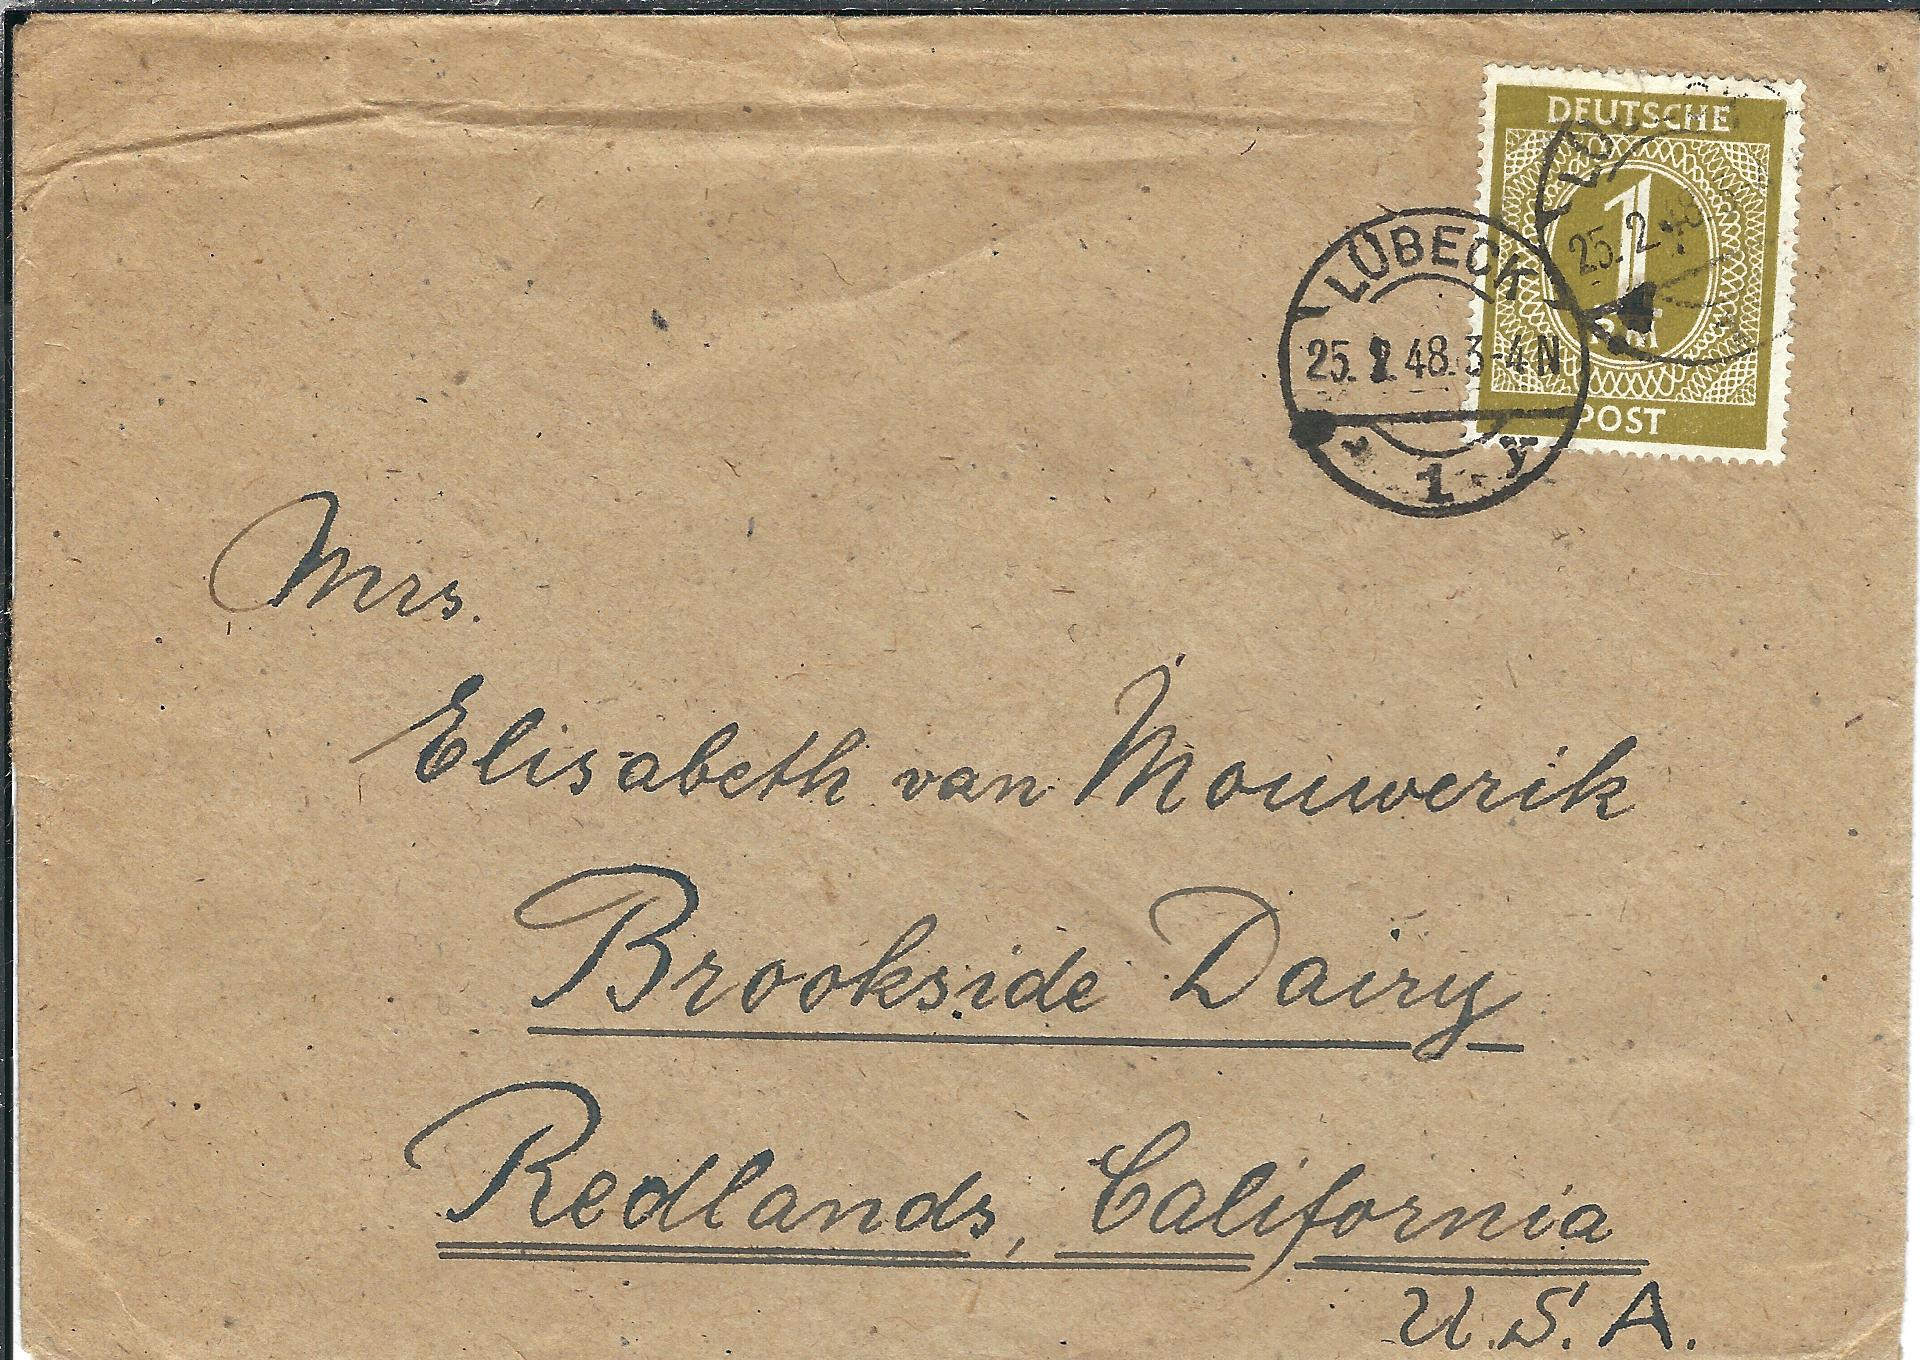 DEUTSCHE
1
RM
POST
LÜBECK
25. 2. 48. 3-4 N
1 y
25. 2. 48
Mrs.
Elisabeth van Mouwerik
Brookside Dairy
Redlands, California
U.S.A.